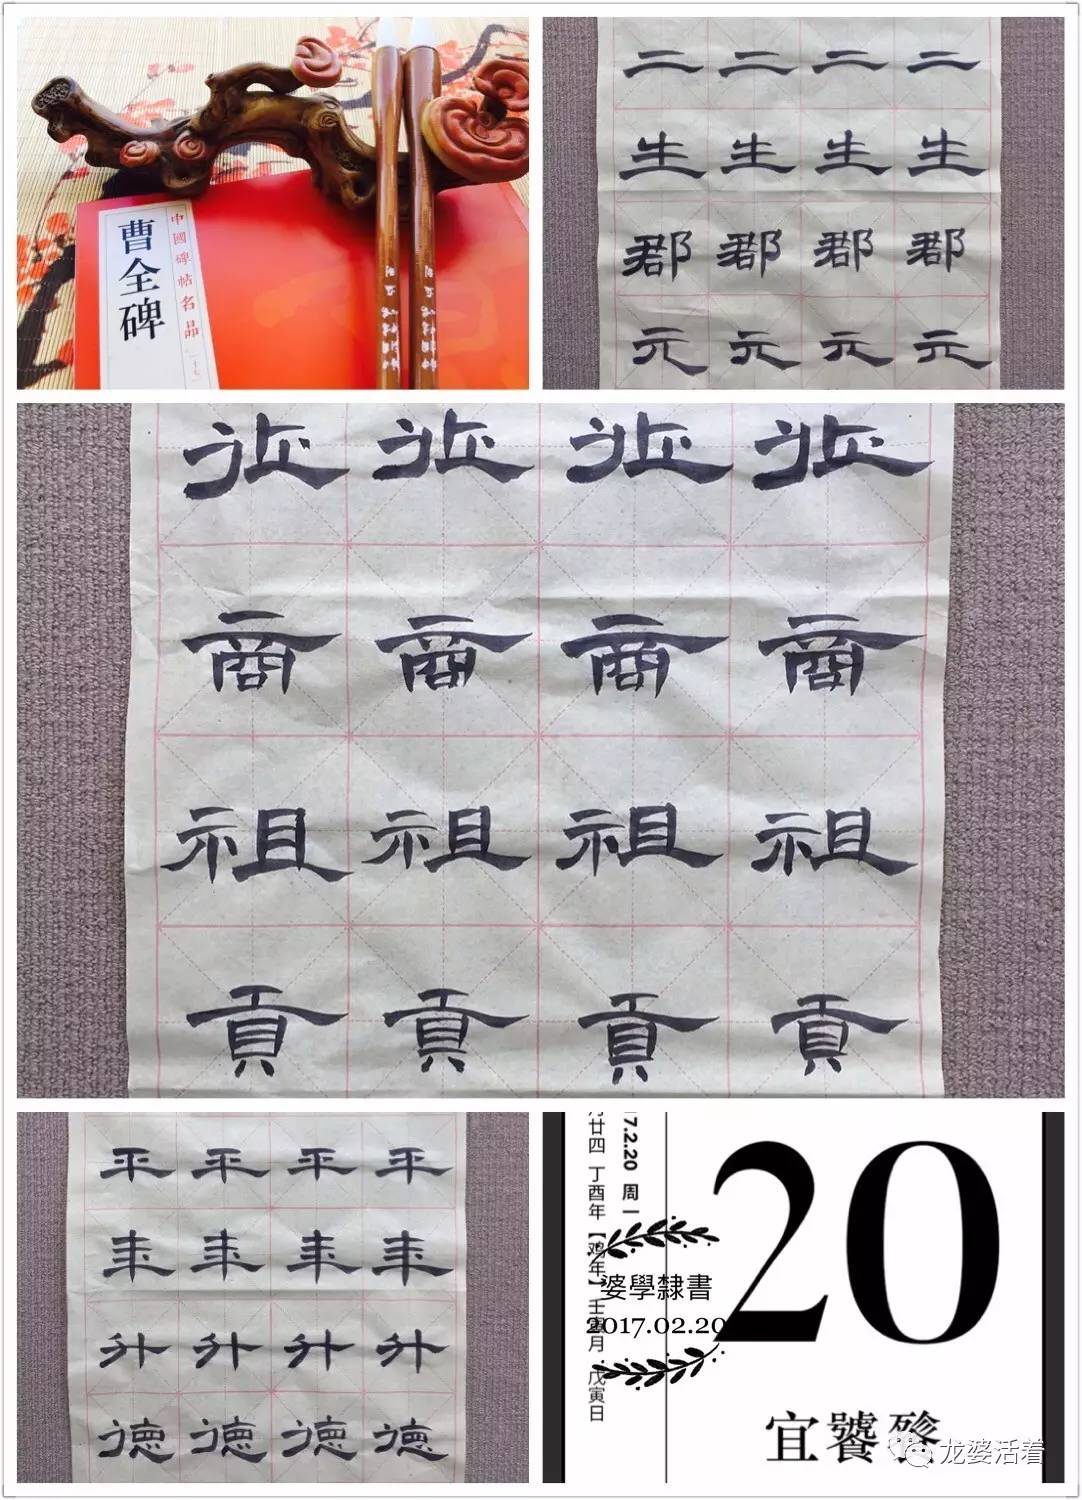 曹全碑
中國碑帖名品
二 二 二 二
生 生 生 生
郡 郡 郡 郡
元 元 元 元
商 商 商 商
祖 祖 祖 祖
貢 貢 貢 貢
平 平 平 平
升 升 升 升
德 德 德 德
7.2.20 周一
廿四 丁酉年【鸡年】壬寅月 戊寅日
20
婆學隸書
2017.02.20
宜饕
龙婆活着